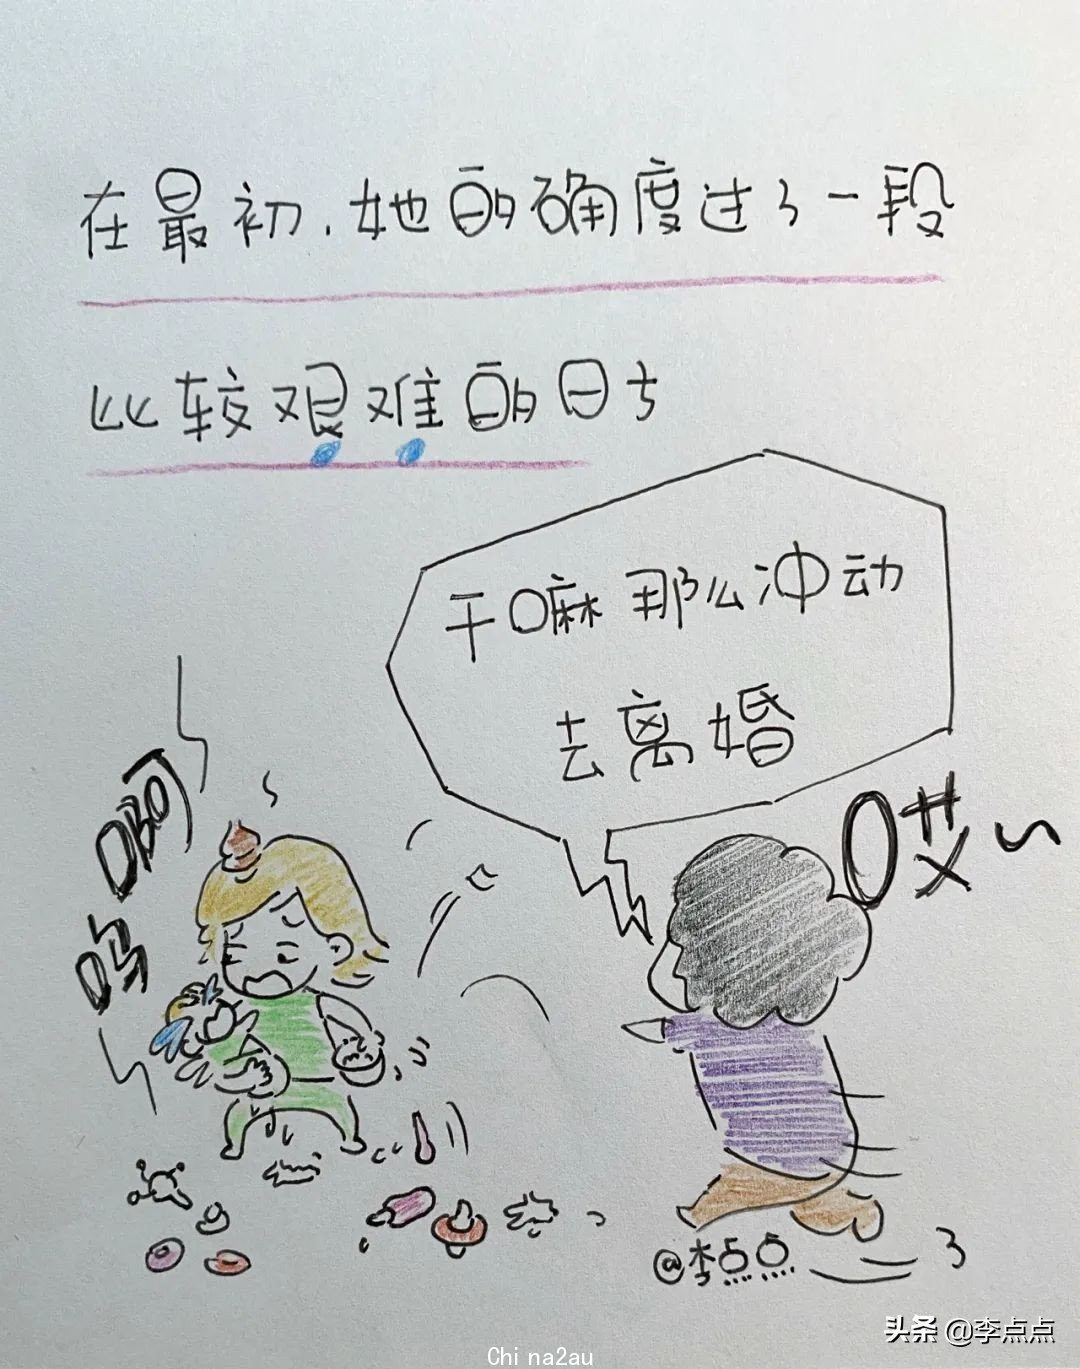 在最初,她的确度过了一段
比较艰难的日子
干嘛那么冲动
去离婚
呜啊
哎~
@李点点
3
头条 @李点点
Chi na2au